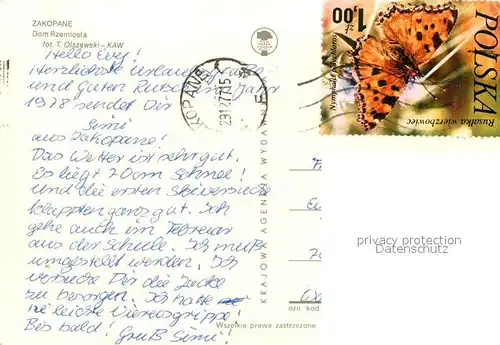 ZAKOPANE
Dom Rzemiosła
fot. T. Olszewski – KAW
Hello Evy!
Herzlichste Urlaubsgrüße
und Guten Rutsch ins Jahr
1978 sendet Dir
Simi
aus Zakopane!
Das Wetter ist sehr gut.
Es liegt 20cm Schnee!
Und die ersten Skiversuche
klappten ganz gut. Ich
gehe auch im Februar
aus der Schule. Ich muß
umgestellt werden. Ich
versuche Dir die Jacke
zu besorgen. Ich hatte
leichte Virusgrippe!
Bis bald!
Gruß Simi!
Wszelkie prawa zastrzeżone
KRAJOWA AGENCJA WYDAWN
KOPANE
29.12.77-15
zł 1,00
POLSKA
Rusałka wierzbowiec
Nymphalis
privacy protection
Datenschutz
ozn. kod